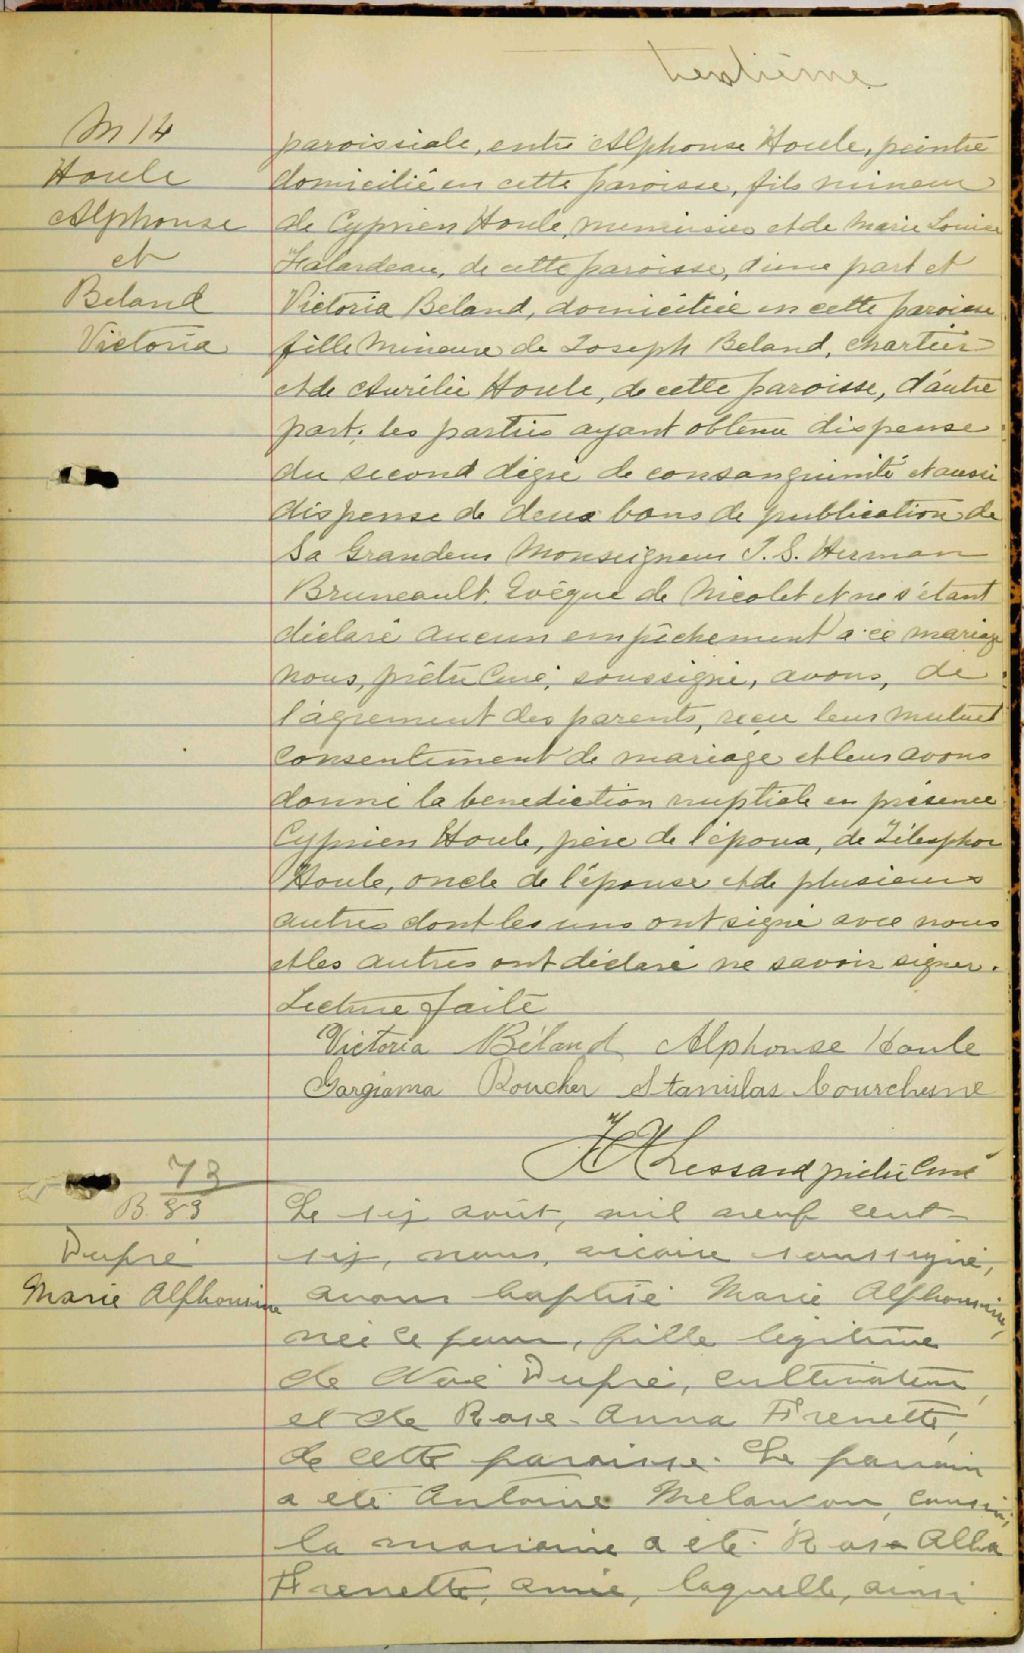 trentième
M 14
Houle
Alphonse
et
Beland
Victoria
paroissiale, entre Alphonse Houle, peintre
domicilié en cette paroisse, fils mineur
de Cyprien Houle, menuisier et de Marie Louise
Falardeau, de cette paroisse, d'une part et
Victoria Beland, domiciliée en cette paroisse
fille mineure de Joseph Beland, chartier
et de Aurélie Houle, de cette paroisse, d'autre
part; les parties ayant obtenu dispense
du second dégré de consanguinité et aussi
dispense de deux bans de publication de
Sa Grandeur Monseigneur J. S. Herman
Bruneault, Evêque de Nicolet et ne s'étant
déclaré aucun empêchement a ce mariage
nous, prêtre Curé, soussigné, avons, de
l'agrement des parents, reçu leur mutuel
Consentement de mariage et leur avons
donné la benediction nuptiale en présence
Cyprien Houle, père de l'époux, de Télesphor
Houle, oncle de l'épouse et de plusieurs
autres dont les uns ont signé avec nous
et les autres ont déclaré ne savoir signer.
Lecture faite
Victoria Béland Alphonse Houle
Gorgiama Boucher Stanislas Courchesne
Lessard prêtre Curé
73
B. 83
Dupré
Marie Alphonsine
Le six août, mil neuf cent
six, nous, vicaire soussigné,
avons baptisé Marie Alphonsine,
née ce jour, fille légitime
de Noé Dupré, cultivateur,
et de Rose-Anna Frenette,
de cette paroisse. Le parrain
a été Antoine Melançon, cousin;
la marraine a été Rose Alba
Frenette, amie, laquelle, ainsi